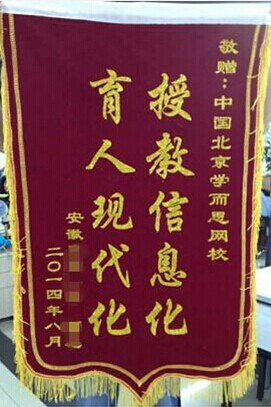 敬赠：中国北京学而思网校
授教信息化
育人现代化
安徽
二〇一四年八月